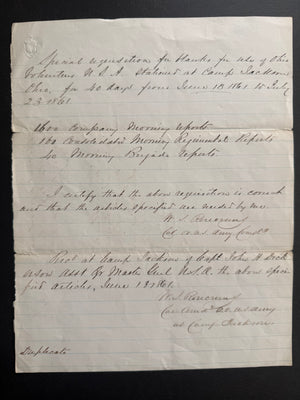 Special requisition for blanks for use of Ohio
Volunteers U.S.A. Stationed at Camp Jackson
Ohio, for 40 days from June 13 1861 to July
23 1861.
1600 Company Morning reports
160 Consolidated Morning Regimental Reports
40 Morning Brigade reports
I certify that the above requisition is correct
and that the articles specified are needed by me
W. S.
Col
Recd at Camp Jackson of Capt John H Dick
erson Asst Qr Master Genl U.S.A. the above speci
fied articles, June 13 1861.
W. S.
at Camp Jackson
Duplicate